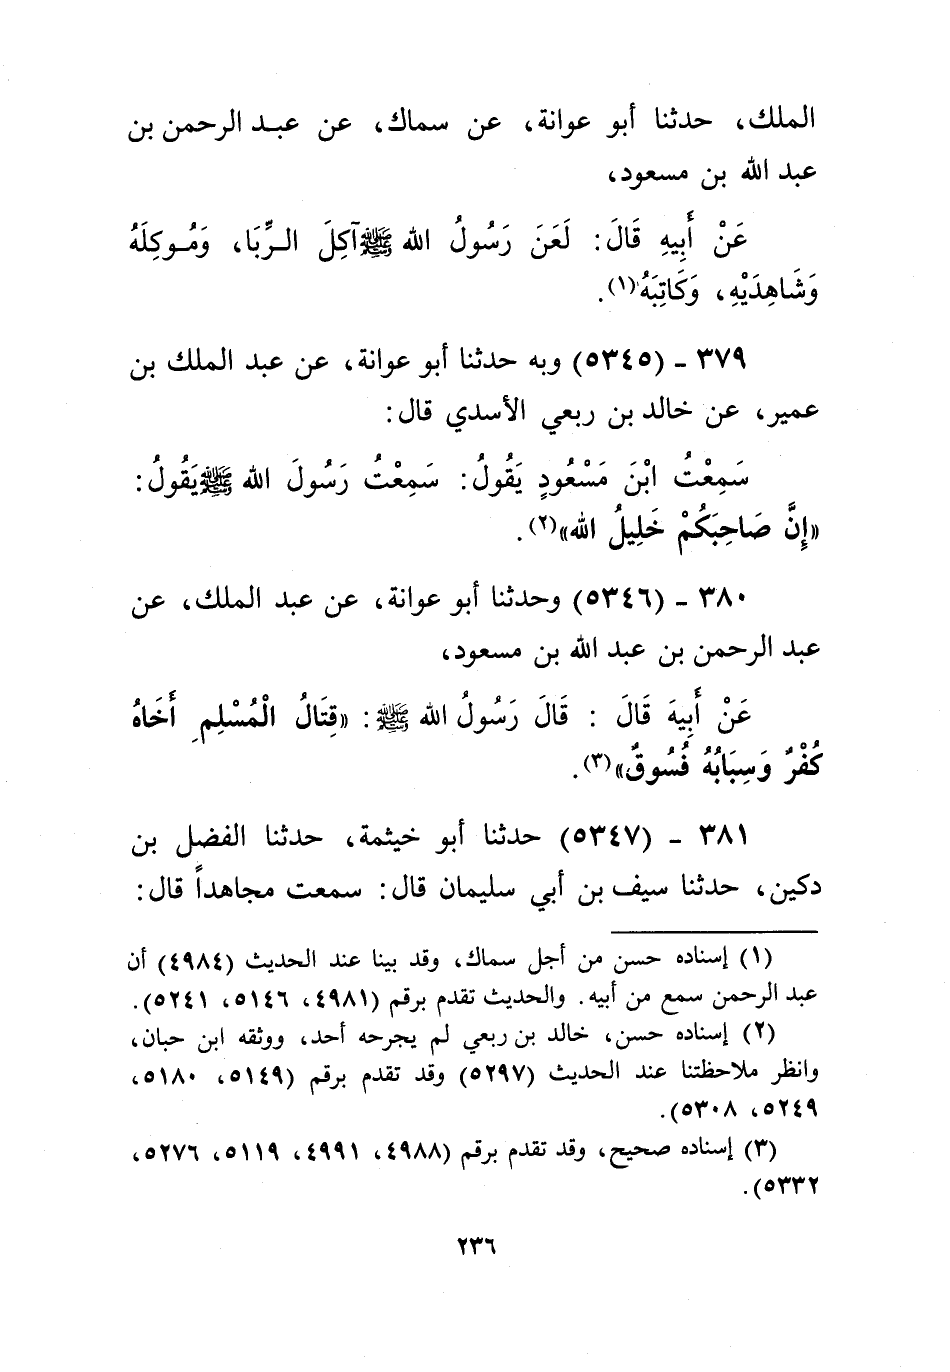 الملك، حدثنا أبو عوانة، عن سماك، عن عبد الرحمن بن
عبد الله بن مسعود،
عَنْ أَبِيهِ قَالَ: لَعَنَ رَسُولُ الله ﷺ آكِلَ الرِّبَا، وَمُوكِلَهُ
وَشَاهِدَيْهِ، وَكَاتِبَهُ(١).
٣٧٩ - (٥٣٤٥) وبه حدثنا أبو عوانة، عن عبد الملك بن
عمير، عن خالد بن ربعي الأسدي قال:
سَمِعْتُ ابْنَ مَسْعُودٍ يَقُولُ: سَمِعْتُ رَسُولَ الله ﷺ يَقُولُ:
«إِنَّ صَاحِبَكُمْ خَلِيلُ الله»(٢).
٣٨٠ - (٥٣٤٦) وحدثنا أبو عوانة، عن عبد الملك، عن
عبد الرحمن بن عبد الله بن مسعود،
عَنْ أَبِيهَ قَالَ : قَالَ رَسُولُ الله ﷺ: «قِتَالُ الْمُسْلِمِ أَخَاهُ
كُفْرٌ وَسِبَابُهُ فُسُوقٌ»(٣).
٣٨١ - (٥٣٤٧) حدثنا أبو خيثمة، حدثنا الفضل بن
دكين، حدثنا سيف بن أبي سليمان قال: سمعت مجاهداً قال:
(١) إسناده حسن من أجل سماك، وقد بينا عند الحديث (٤٩٨٤) أن
عبد الرحمن سمع من أبيه. والحديث تقدم برقم (٤٩٨١، ٥١٤٦، ٥٢٤١).
(٢) إسناده حسن، خالد بن ربعي لم يجرحه أحد، ووثقه ابن حبان،
وانظر ملاحظتنا عند الحديث (٥٢٩٧) وقد تقدم برقم (٥١٤٩، ٥١٨٠،
٥٢٤٩، ٥٣٠٨).
(٣) إسناده صحيح، وقد تقدم برقم (٤٩٨٨، ٤٩٩١، ٥١١٩، ٥٢٧٦،
٥٣٣٢).
٢٣٦